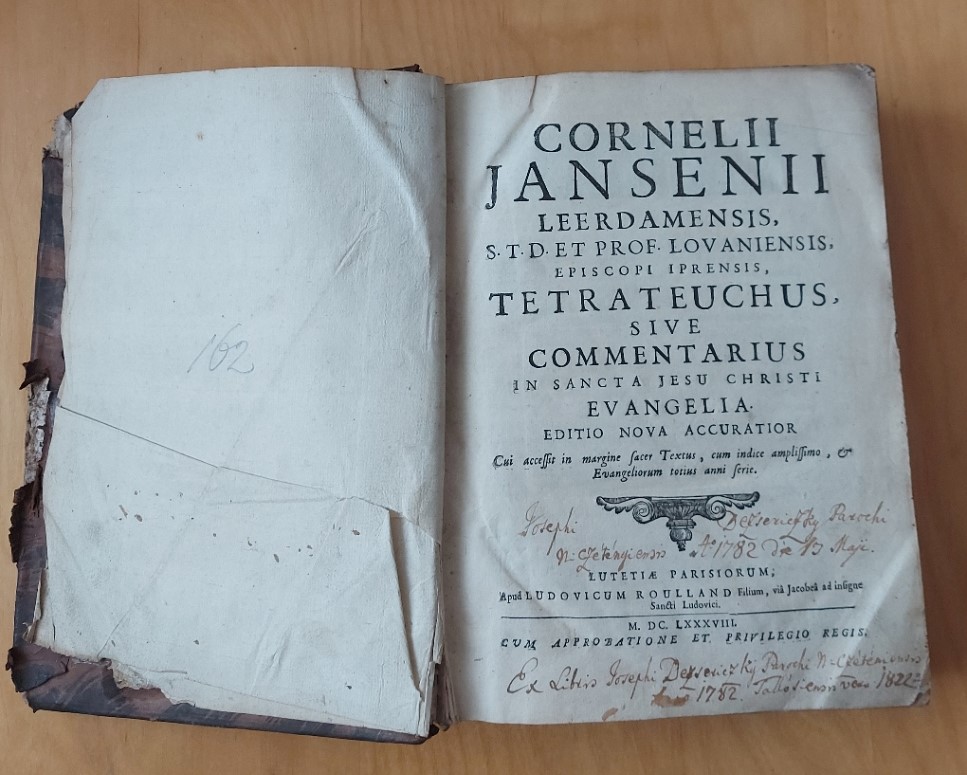 162
CORNELII
JANSENII
LEERDAMENSIS,
S. T. D. ET PROF. LOVANIENSIS,
EPISCOPI IPRENSIS,
TETRATEUCHUS,
SIVE
COMMENTARIUS
IN SANCTA JESU CHRISTI
EVANGELIA.
EDITIO NOVA ACCURATIOR
Cui accessit in margine sacer Textus, cum indice amplissimo, &
Evangeliorum totius anni serie.
Josephi Dersericzky Parochi
N-Czétényiensis Aº 1782 die 13 Maji.
LUTETIÆ PARISIORUM;
Apud LUDOVICUM ROULLAND Filium, viâ Jacobeâ ad insigne
Sancti Ludovici.
M. DC. LXXXVIII.
CUM APPROBATIONE ET PRIVILEGIO REGIS.
Ex Libris Josephi Dersericzky Parochi
1782. vero 1822